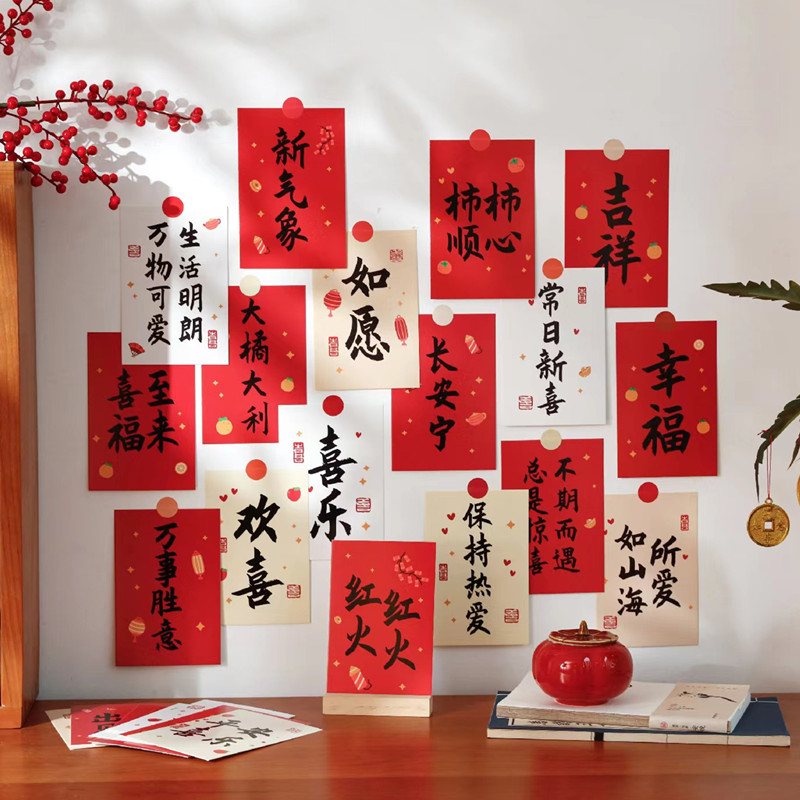 新气象
柿柿
顺心
吉祥
生活明朗
万物可爱
如愿
常日新喜
大橘大利
长安宁
幸福
喜至
福来
喜乐
不期而遇
总是惊喜
欢喜
保持热爱
所爱
如山海
万事胜意
红红
火火